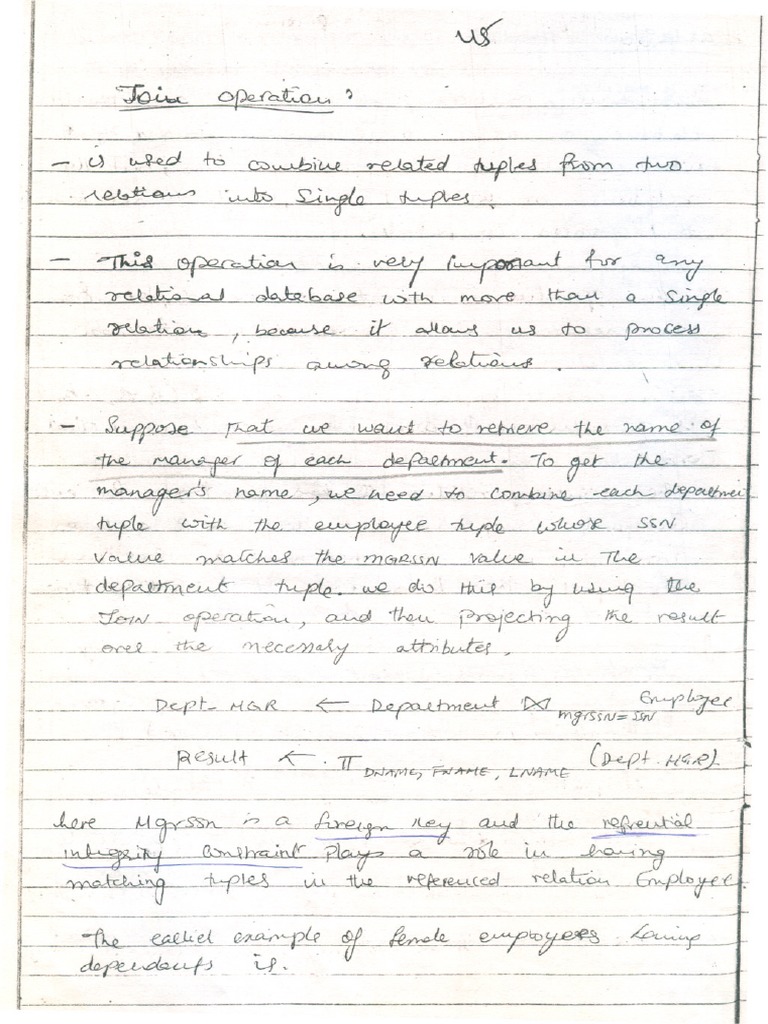 Join operation :
- is used to combine related tuples from two
relations into Single tuples.
- This operation is very important for any
relational database with more than a single
relation, because it allows us to process
relationships among relations.
- Suppose that we want to retrieve the name of
the manager of each department. To get the
manager's name, we need to combine each departmen
tuple with the employee tuple whose SSN
value matches the MGRSSN value in The
department tuple. we do this by using the
JOIN operation, and then projecting the result
over the necessary attributes.
Dept-MGR ← Department ⋈ mgrssn=SSN Employee
Result ← π DNAME, FNAME, LNAME (Dept-MGR)
here Mgrssn is a foreign key and the refrential
integrity constraint plays a role in having
matching tuples in the referenced relation Employee
The earlier example of female employees having
dependents is.